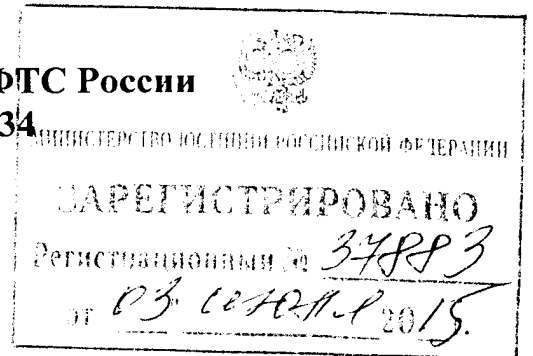 ФТС России
34
МИНИСТЕРСТВО ЮСТИЦИИ РОССИЙСКОЙ ФЕДЕРАЦИИ
ЗАРЕГИСТРИРОВАНО
Регистрационный № 37883
от 03. июля 2015.